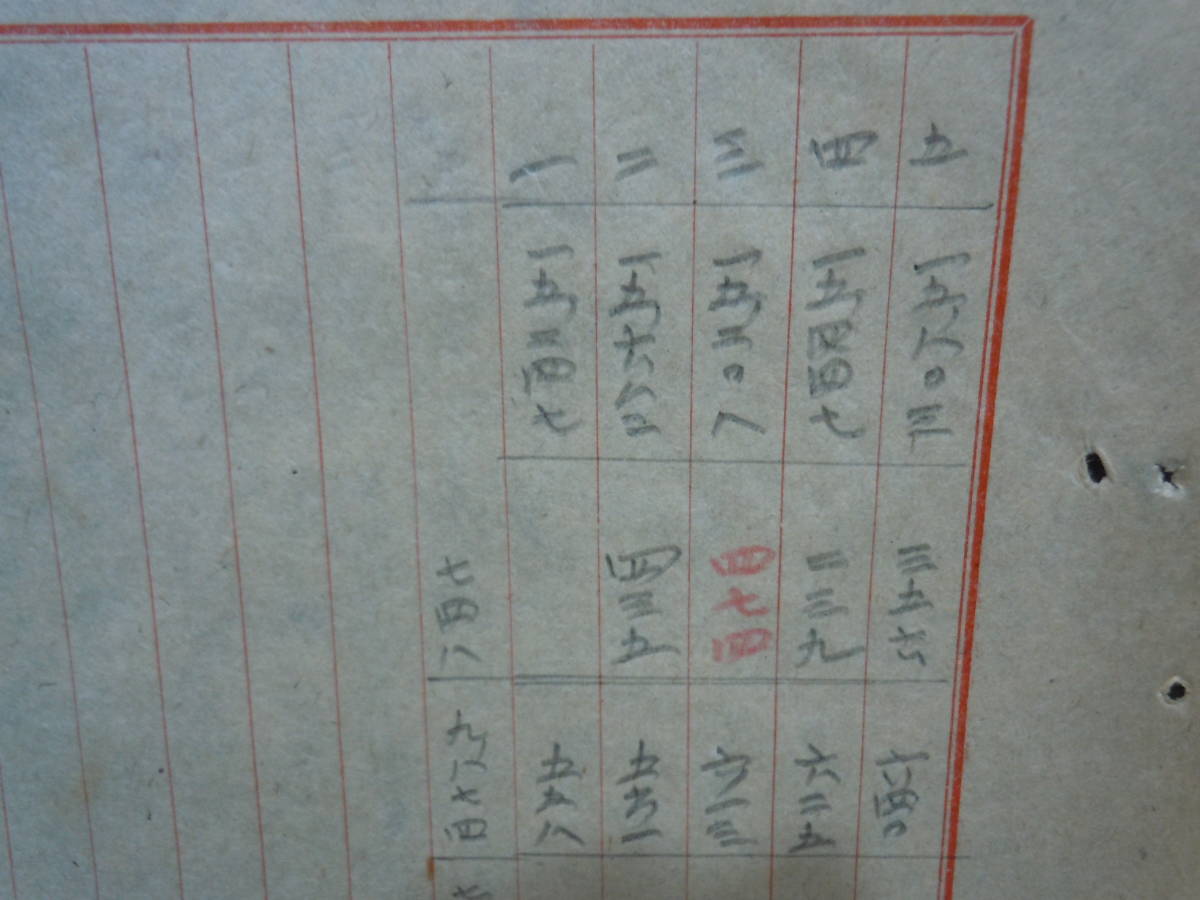 五 一五八〇三 三五六 六四〇
四 一五四四七 二三九 六二五
三 一五二〇八 四七四 六一三
二 一五六八二 四三五 五六一
一 一五二四七 五五八
七四八 九八七四 七